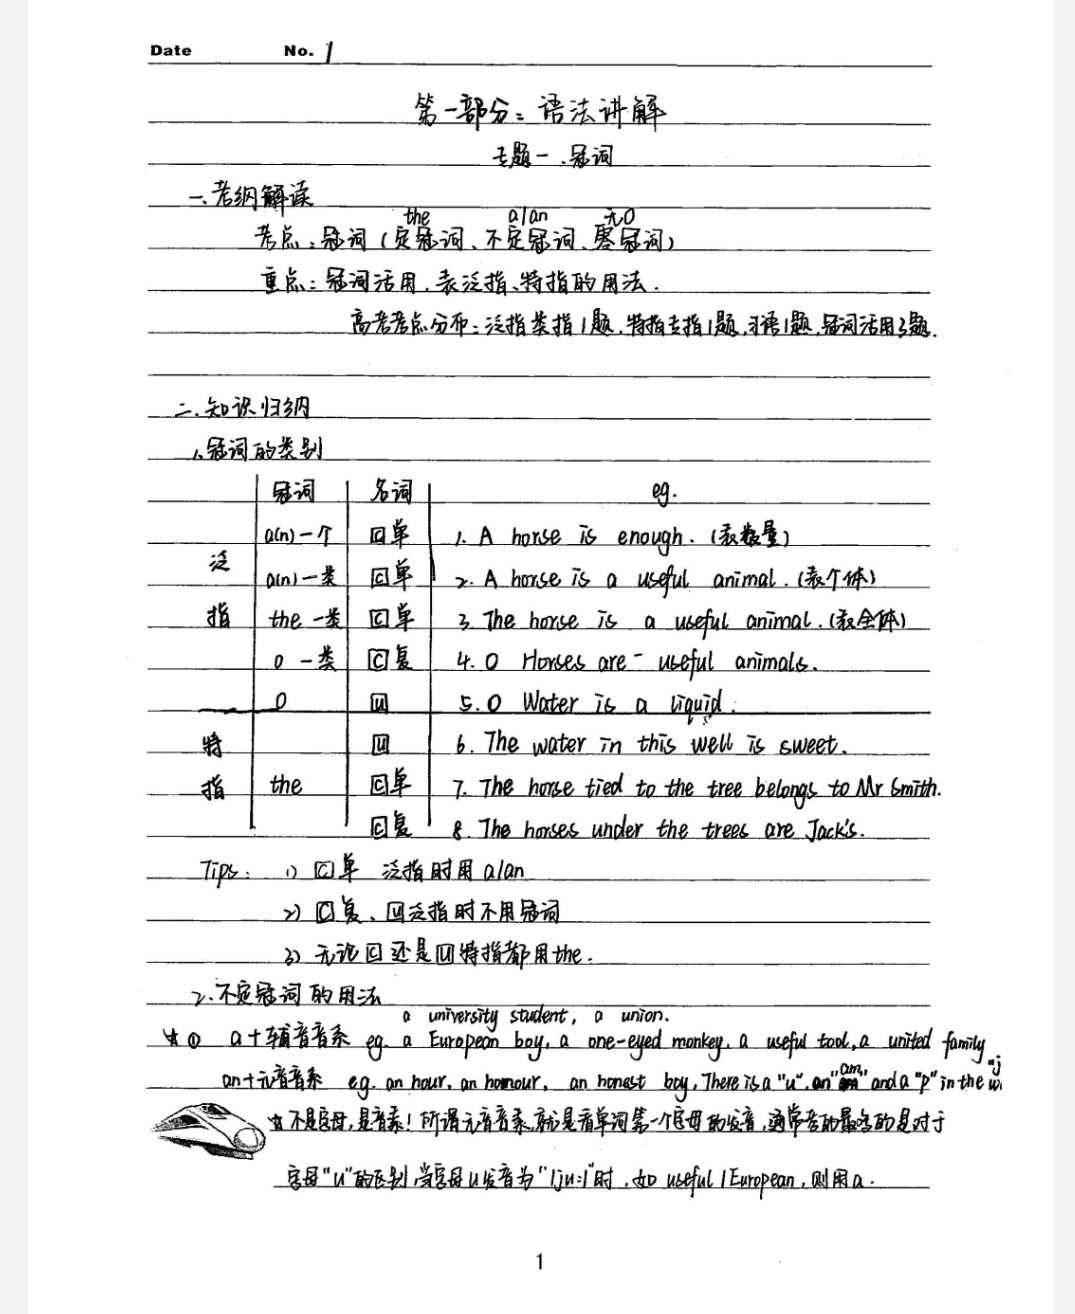 Date No. 1
第一部分：语法讲解
专题一、冠词
一、考纲解读
the a/an 无0
考点：冠词（定冠词、不定冠词、零冠词）
重点：冠词活用，表泛指、特指的用法.
高考考点分布：泛指类指1题，特指专指1题，习语1题，冠词活用3题.
二、知识归纳
1、冠词的类别
冠词 名词 eg.
a(n)一个 [C]单 1. A horse is enough.（表数量）
泛 a(n)一类 [C]单 2. A horse is a useful animal.（表个体）
指 the 一类 [C]单 3. The horse is a useful animal.（表全体）
0 一类 [C]复 4. 0 Horses are useful animals.
0 [U] 5. 0 Water is a liquid.
特 [U] 6. The water in this well is sweet.
指 the [C]单 7. The horse tied to the tree belongs to Mr Smith.
[C]复 8. The horses under the trees are Jack's.
Tips: 1) [C]单 泛指时用a/an
2) [C]复、[U]泛指时不用冠词
3) 无论[C]还是[U]特指都用the.
2、不定冠词的用法
a university student, a union.
☆① a+辅音音素 eg. a European boy, a one-eyed monkey, a useful tool, a united family
an+元音音素 eg. an hour, an honour, an honest boy, There is a "u", an "m" and a "p" in the
☆不是字母，是音素！所谓元音音素，就是看单词第一个字母的发音，通常考的最多的是对于
字母"u"的区别，当字母u发音为"/ju:/"时，如useful/European，则用a.
1